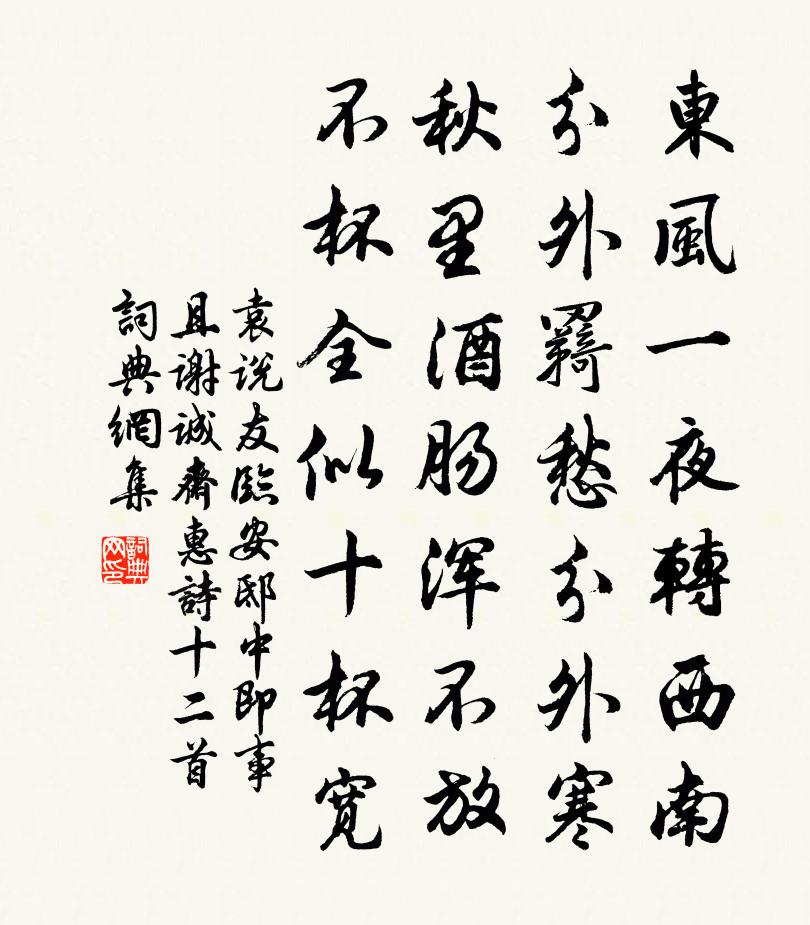 東風一夜轉西南
分外羇愁分外寒
秋里酒肠浑不放
不杯全似十杯寬
袁説友臨安邸中即事
且謝誠齋惠詩十二首
詞典網集
詞典网印